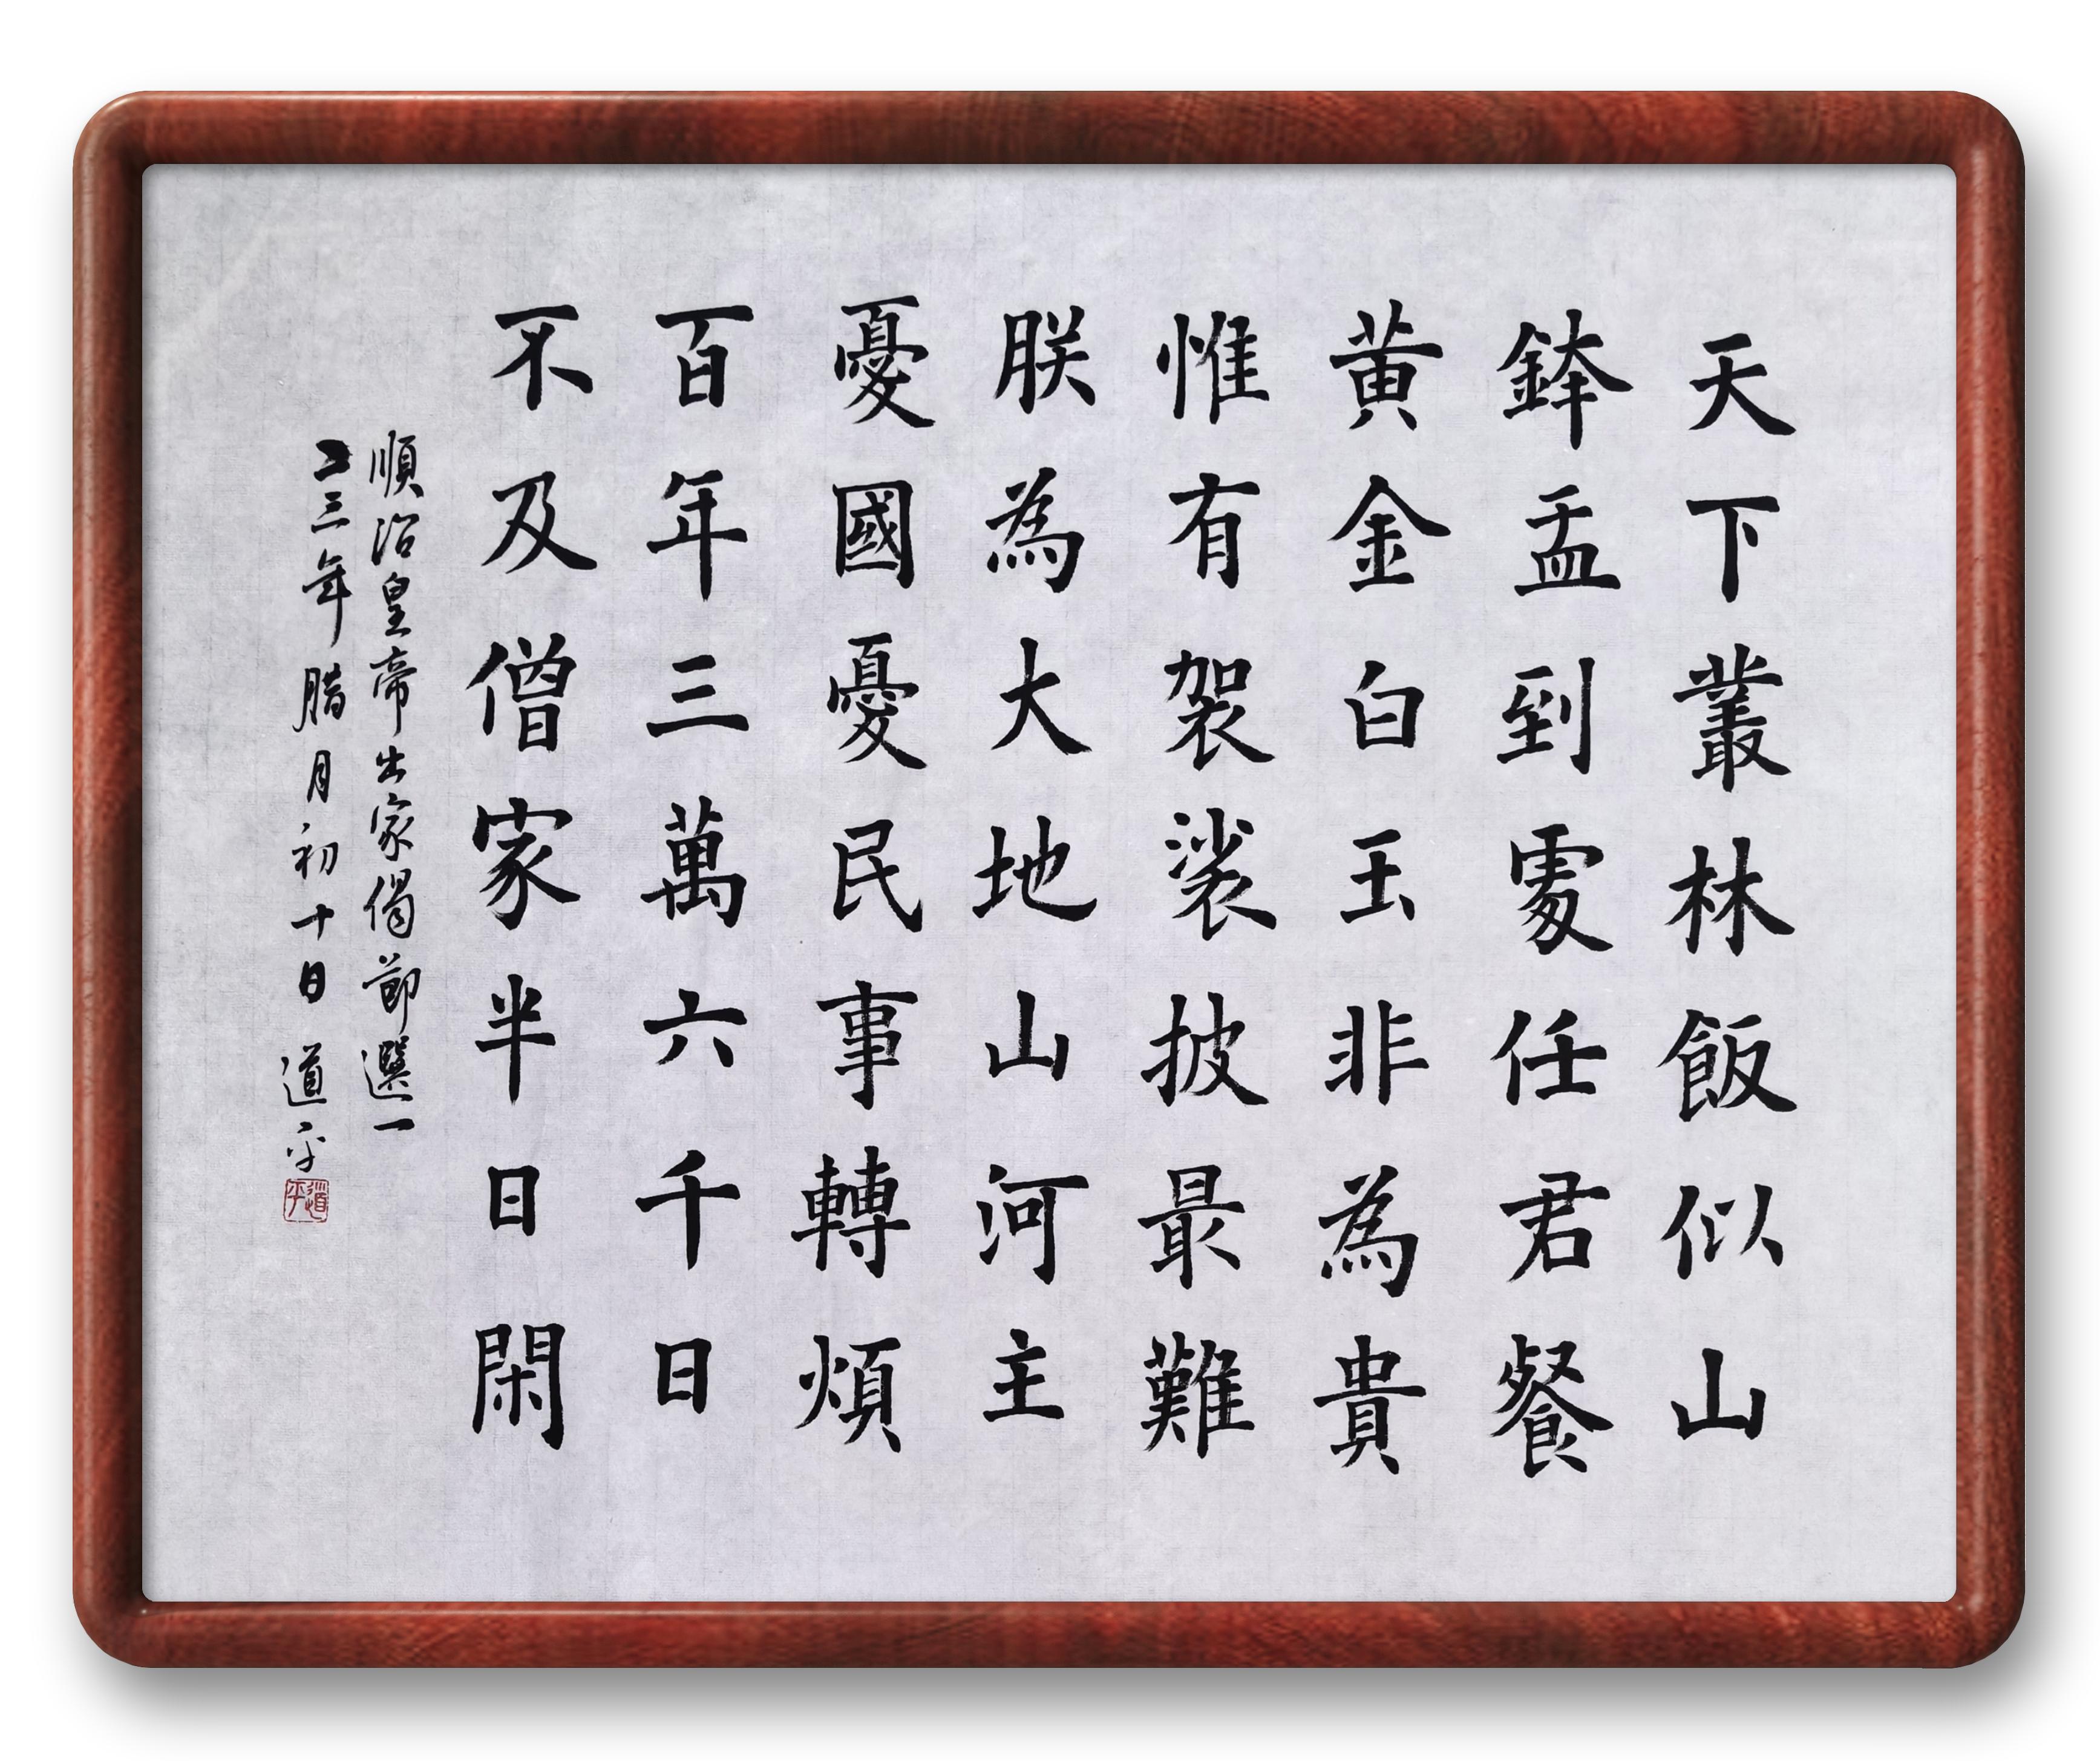 天下叢林飯似山
鉢盂到處任君餐
黄金白玉非為貴
惟有袈裟披最難
朕為大地山河主
憂國憂民事轉煩
百年三萬六千日
不及僧家半日閑
順治皇帝出家偈節選一
二三年腊月初十日 道平
道平